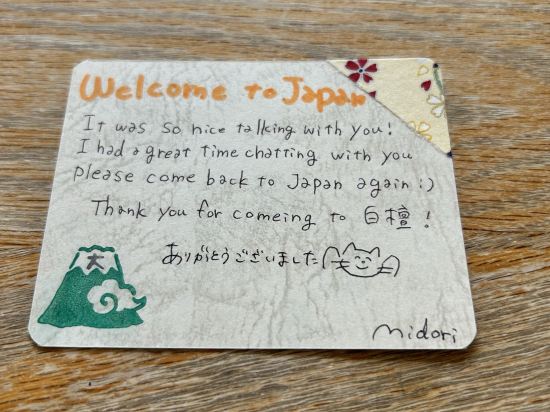 Welcome to Japan
It was so nice talking with you!
I had a great time chatting with you
please come back to Japan again :)
Thank you for comeing to 白檀!
ありがとうございました
大
Midori